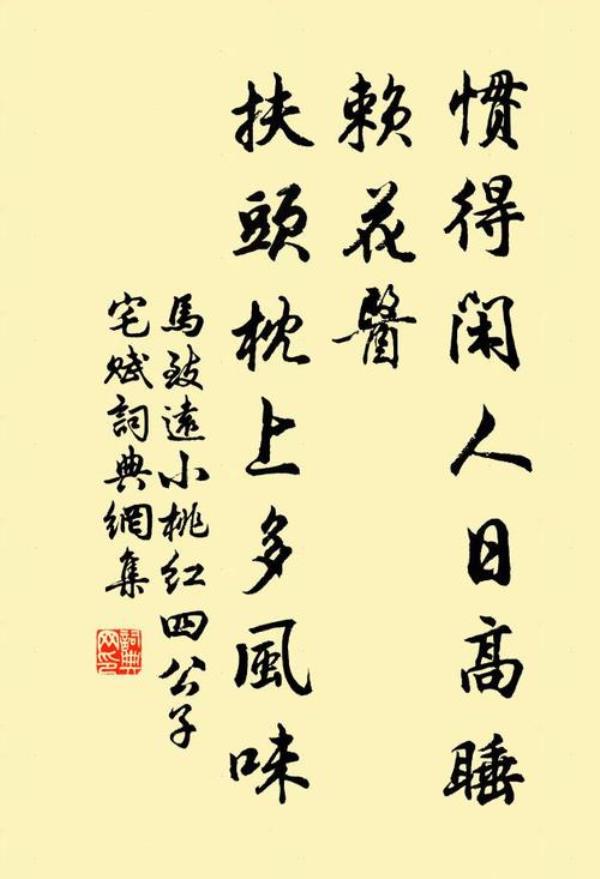 慣得閑人日高睡
賴花醫
扶頭枕上多風味
馬致遠小桃紅四公子
宅賦詞典網集
詞典
网印